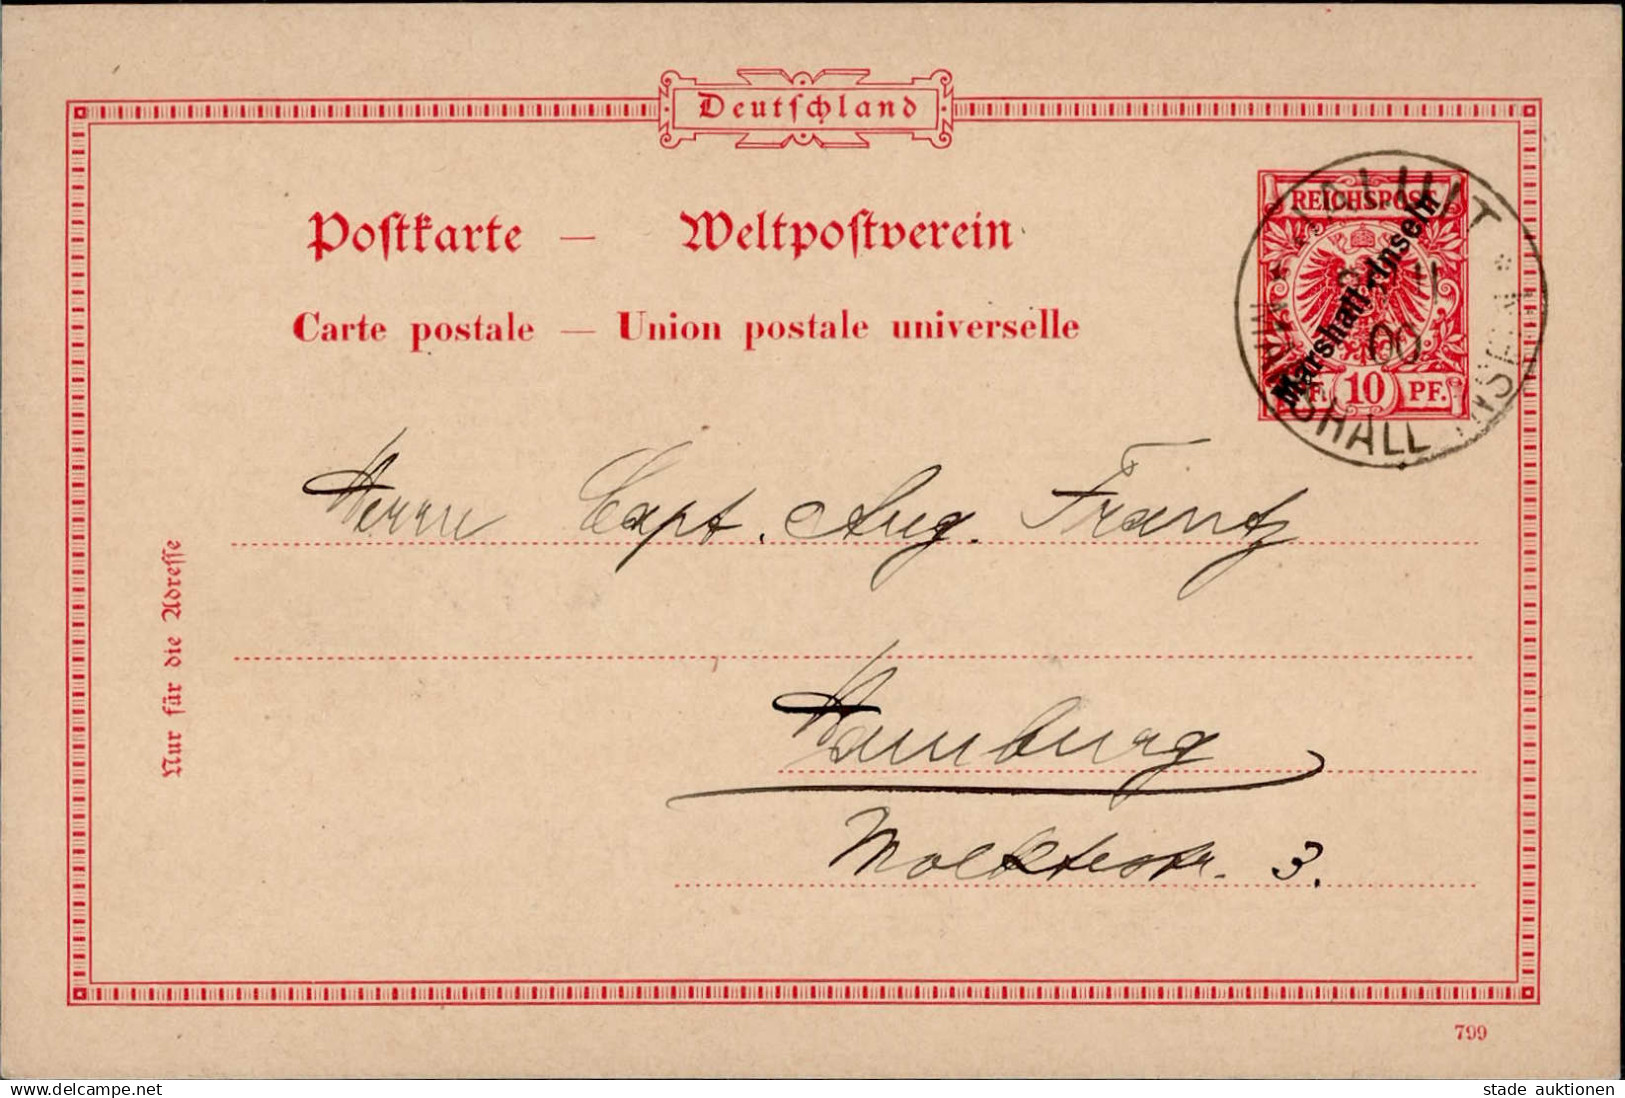 Deutschland
Postkarte — Weltpostverein
Carte postale — Union postale universelle
REICHSPOST
Marshall-Inseln
10 PF.
JALUIT
00
MARSHALL INSELN
Herrn Capt. Aug. Frantz
Hamburg
Moltkestr. 3.
Nur für die Adresse
799
delcampe.net
stade auktionen